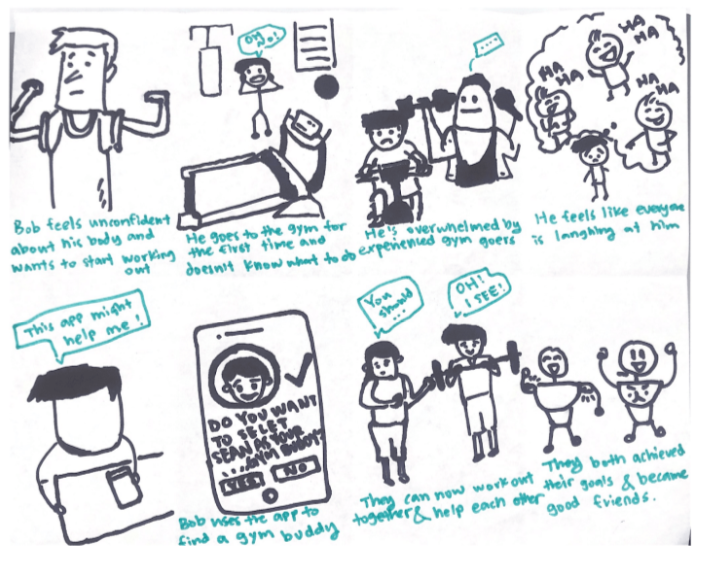 OH
NO!
....
HA
HA
HA
HA
HA
HA
Bob feels unconfident
about his body and
wants to start working
out
He goes to the gym for
the first time and
doesn't know what to do
He's overwhelmed by
experienced gym goers
He feels like everyone
is laughing at him
This app might
help me!
DO YOU WANT
TO SELET
SEAN AS YOUR
....GYM BUDDY?
YES NO
Bob uses the app to
find a gym buddy
You
should
...
OH!
I SEE!
They can now workout
together & help each other
They both achieved
their goals & became
good friends.